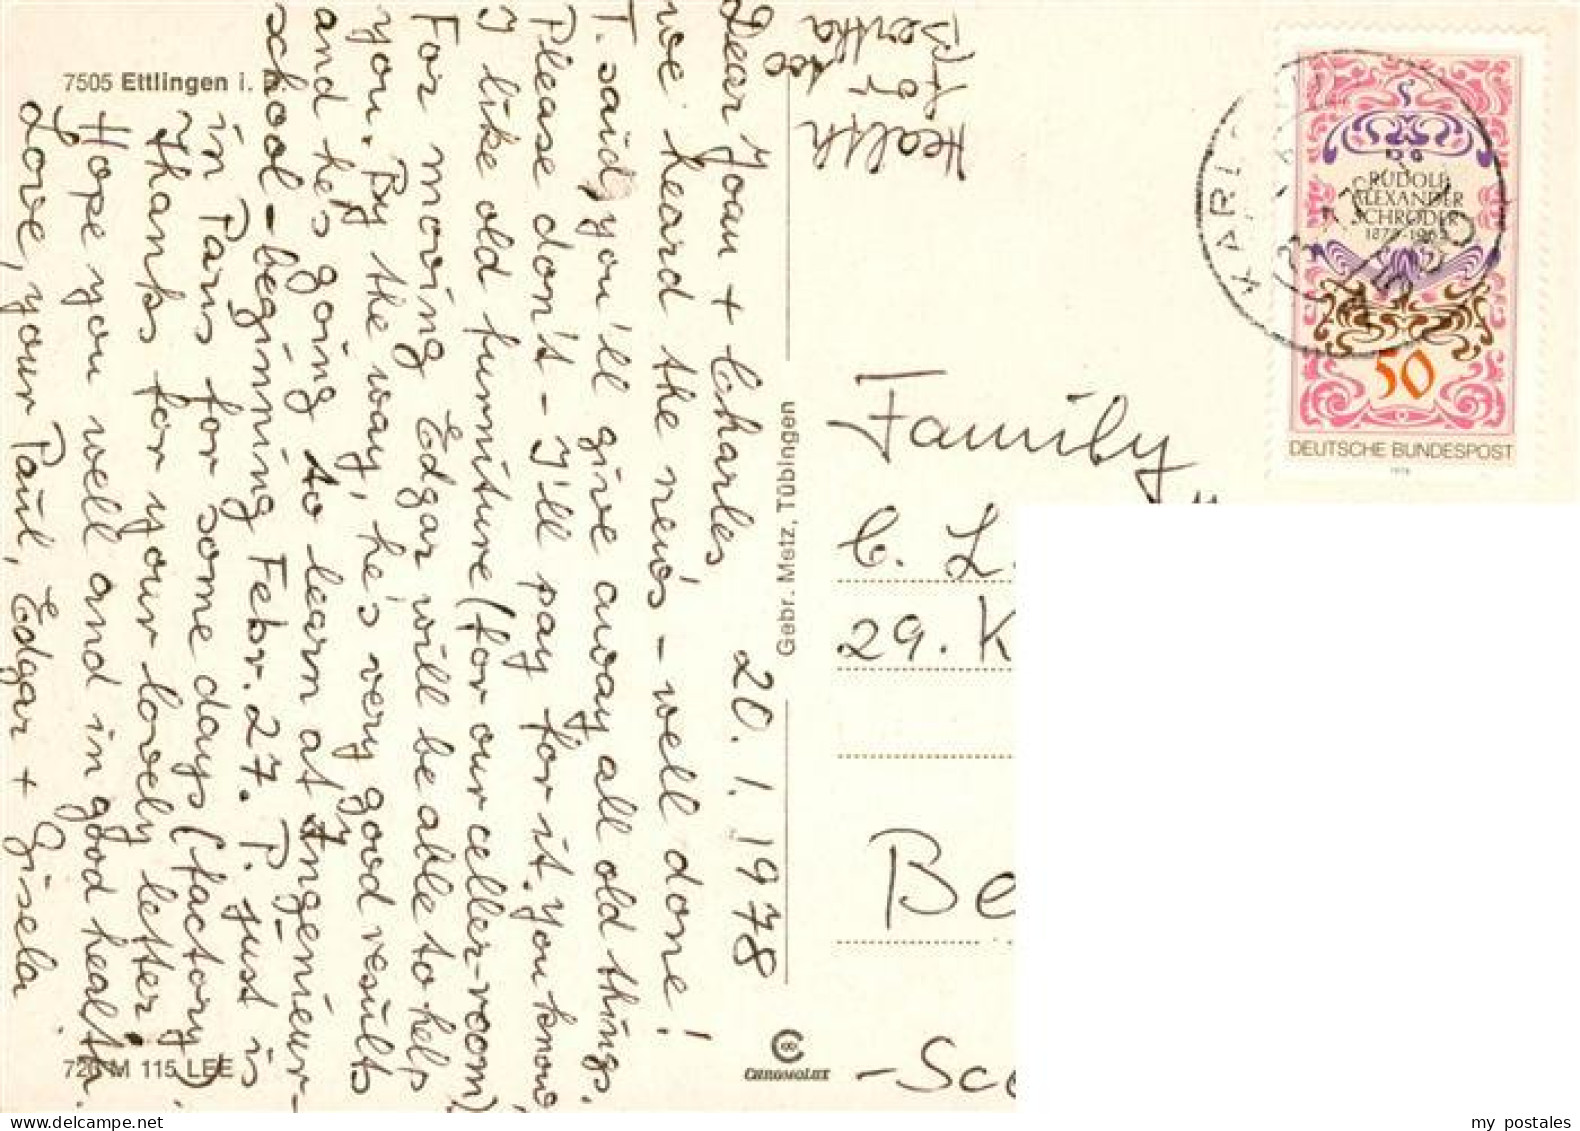 7505 Ettlingen i. B.
20. 1. 1978
Dear Joan + Charles,
we heard the news - well done!
T. said, you'll give away all old things.
Please don't - I'll pay for it. You know,
I like old furniture (for our celler-room)
For moving Edgar will be able to help
you. By the way, he's very good results
and he's going to learn at Ingenieur-
school - beginning Febr. 27. P. just is
in Paris for some days (factory).
Thanks for your lovely letter.
Hope you well and in good health.
Love, your Paul, Edgar + Gisela
Health
for
Bertha
too
726 M 115 LEE
Gebr. Metz, Tübingen
CHROMOLUX
RUDOLF
ALEXANDER
SCHRÖDER
1878-1962
50
DEUTSCHE BUNDESPOST
1978
KARL
Family
C. L.
29. K
Be
- Sc
my postales